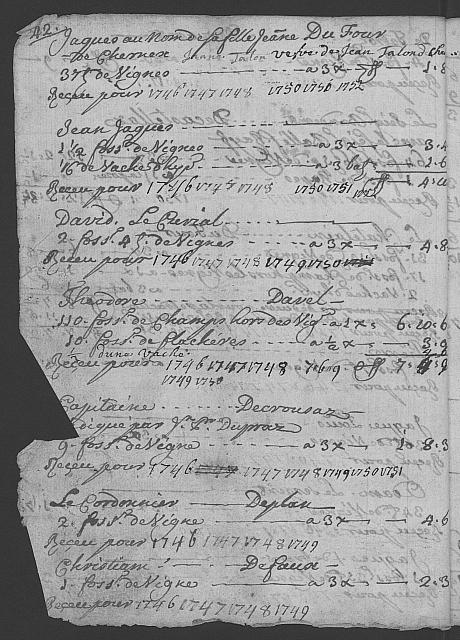 42.
Jaques au Nom de sa fille Jeanne Du Four
de Chernex Jeanne Talon vefve de Jean Talond
37 t. de Vignes a 3x 1 . 8
Receu pour 1746 1747 1748 1750 1751 1752
Jean Jaques
2 1/2 foss. de Vignes a 3x 3 . 4
1/6 de Vache a 3 2 . 6
Receu pour 1746 1747 1748 1750 1751 1752
David. Le
2 foss. 4 t. de Vignes a 3x 4 . 8
Receu pour 1746 1747 1748 1749 1750
Theodore Davel
110 foss. de Champs hors des Vig. a 1x 6 . 20 . 6
10. foss. de flacheres a 1/2 x 3 . 9
d'une vache
Receu pour 1746 1747 1748
1749 1750
Capitaine Decrousaz
par Dupraz
9 foss. de Vigne a 3x 1 . 8 . 3
Receu pour 1746 1747 1748 1749 1750 1751
Le Cordonnier Deplan
2. foss. de Vigne a 3x 4 . 6
Receu pour 1746 1747 1748 1749
Christian Defaux
1. foss. de Vigne a 3x 2 . 3
Receu pour 1746 1747 1748 1749